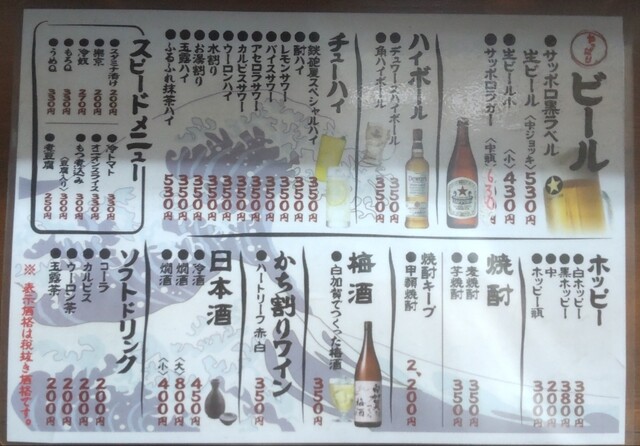 ビール
●サッポロ黒ラベル
生ビール〈中ジョッキ〉530円
●生ビール小 〈小〉430円
●サッポロラガー〈中瓶〉630円
ハイボール
●デュワーズハイボール 350円
●角ハイボール 350円
チューハイ
スペシャルハイ 350円
●酎ハイ 350円
●レモンサワー 350円
●バイスサワー 350円
●アセロラサワー 350円
●カルピスサワー 350円
●ウーロンハイ 350円
●水割り 350円
●お湯割り 350円
●玉露ハイ 350円
●ふるふれ抹茶ハイ 530円
スピードメニュー
200円
●塩らっきょう
●冷奴 270円
●もろQ 330円
●うめQ 350円
●冷トマト 330円
●オニオンスライス 330円
●もつ煮込み(豆腐入り) 330円
●煮豆腐 250円
ホッピー
●白ホッピー 380円
●黒ホッピー 380円
●中 200円
●ホッピー瓶 300円
焼酎
●麦焼酎 350円
●芋焼酎 350円
焼酎キープ
●甲類焼酎 2,200円
梅酒
●白加賀でつくった梅酒 350円
かち割りワイン
●ハートリーフ 赤 白 350円
日本酒
●冷酒 450円
●燗酒〈大〉800円
●燗酒〈小〉400円
ソフトドリンク
●コーラ 200円
●カルピス 200円
●ウーロン茶 200円
●玉露茶 200円
※表示価格は税抜き価格です。